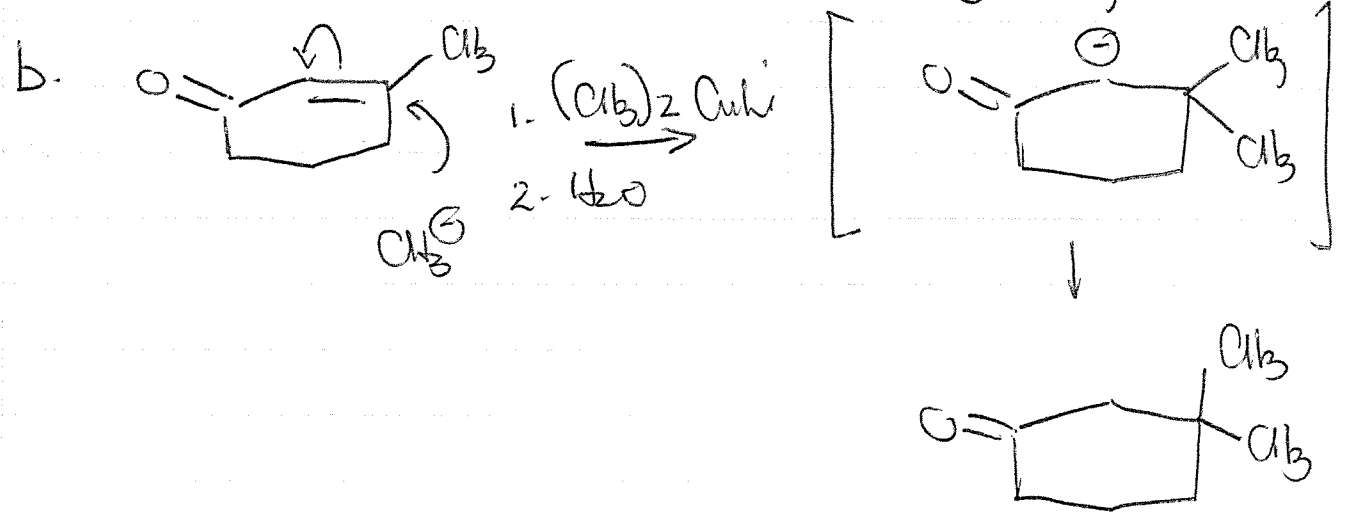 b.
O
CH3
1. (CH3)2 CuLi
2. H2O
CH3⊖
O
⊖
CH3
CH3
O
CH3
CH3